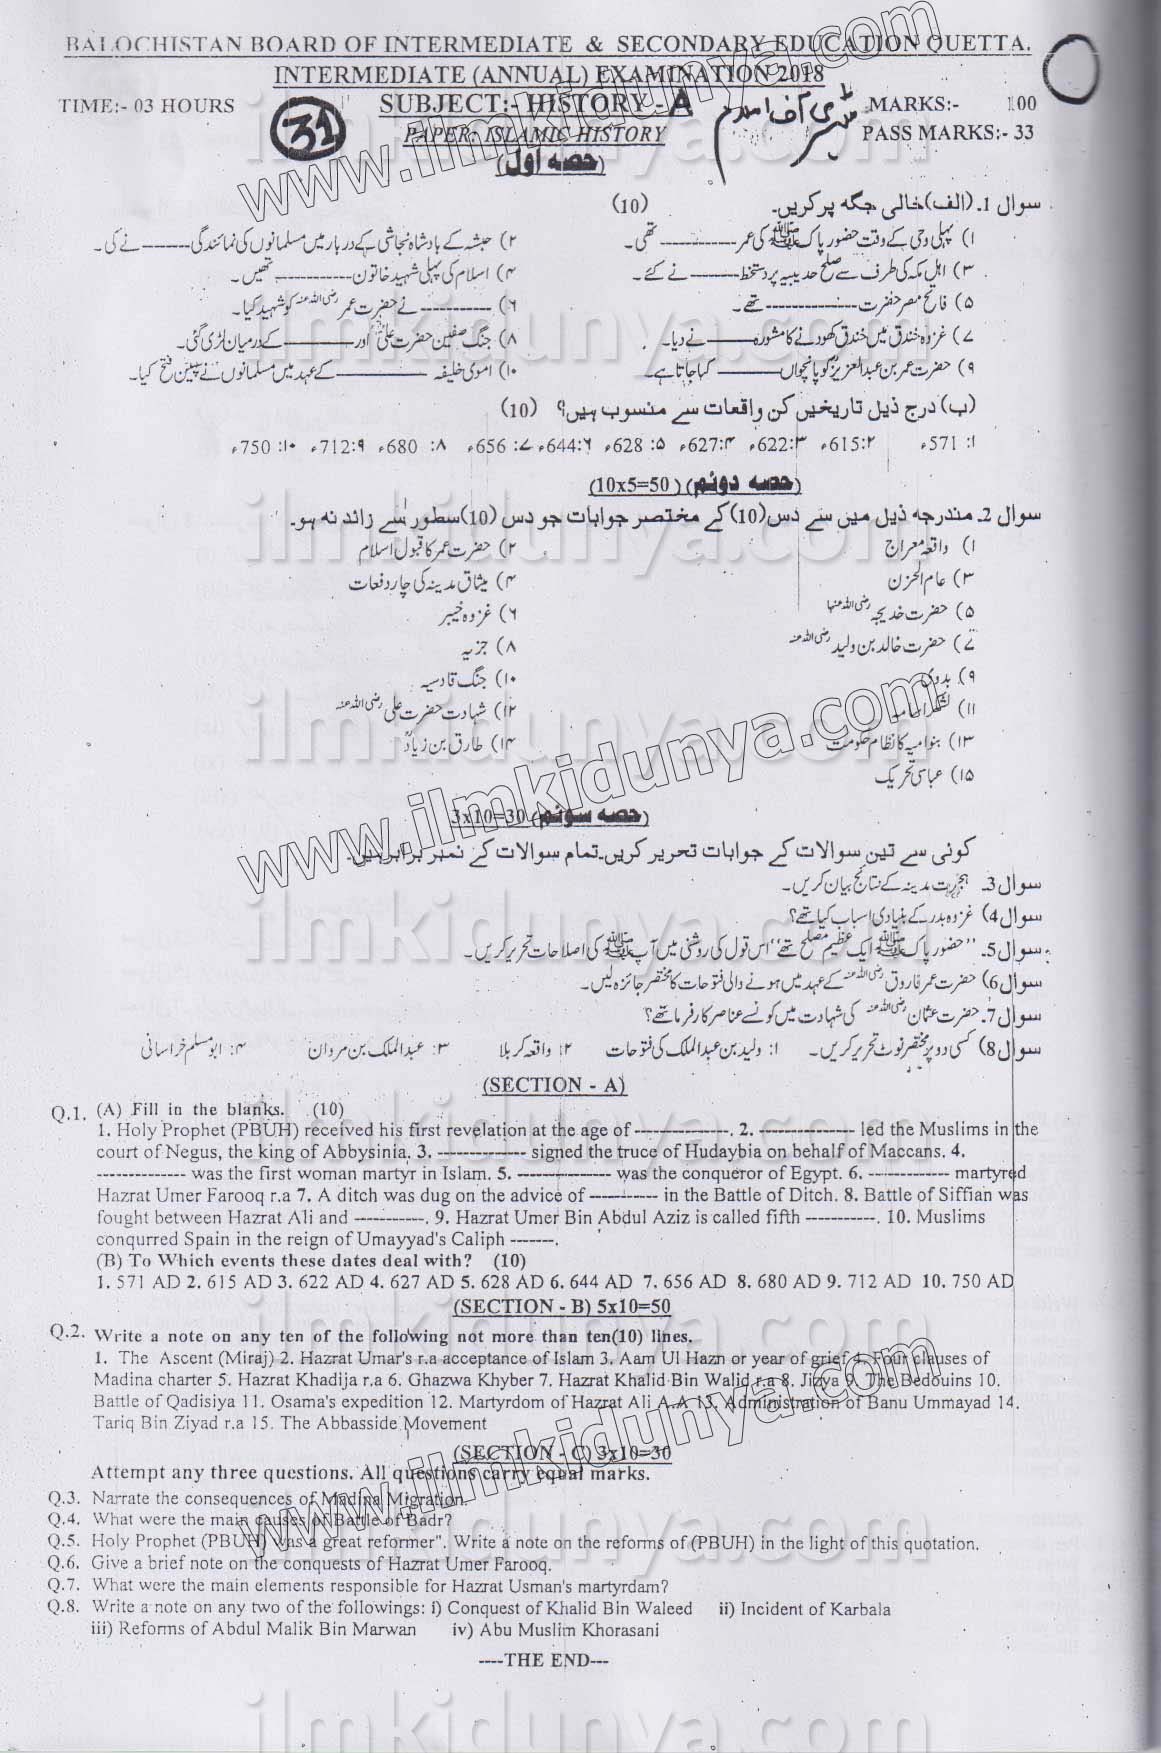 BALOCHISTAN BOARD OF INTERMEDIATE & SECONDARY EDUCATION QUETTA.
INTERMEDIATE (ANNUAL) EXAMINATION 2018
TIME:- 03 HOURS SUBJECT:- HISTORY - A MARKS:- 100
31 PAPER: ISLAMIC HISTORY ہسٹری آف اسلام PASS MARKS:- 33
(حصہ اول)
سوال 1۔ (الف) خالی جگہ پر کریں۔ (10)
۱) پہلی وحی کے وقت حضور پاک ﷺ کی عمر ------------ تھی۔ ۲) حبشہ کے بادشاہ نجاشی کے دربار میں مسلمانوں کی نمائندگی ------- نے کی۔
۳) اہل مکہ کی طرف سے صلح حدیبیہ پر دستخط ------- نے کئے۔ ۴) اسلام کی پہلی شہید خاتون ----------- تھیں۔
۵) فاتح مصر حضرت -------------- تھے۔ ۶) ---------- نے حضرت عمر رضی اللہ عنہ کو شہید کیا۔
۷) غزوہ خندق میں خندق کھودنے کا مشورہ ------- نے دیا۔ ۸) جنگ صفین حضرت علیؓ اور ---------- کے درمیان لڑی گئی۔
۹) حضرت عمر بن عبدالعزیز کو پانچواں --------- کہا جاتا ہے۔ ۱۰) اموی خلیفہ ------------ کے عہد میں مسلمانوں نے سپین فتح کیا۔
(ب) درج ذیل تاریخیں کن واقعات سے منسوب ہیں؟ (10)
۱: 571ء ۲:615ء ۳:622ء ۴:627ء ۵: 628ء ۶:644ء ۷: 656ء ۸: 680ء ۹:712ء ۱۰: 750ء
(حصہ دوئم) (10x5=50)
سوال 2۔ مندرجہ ذیل میں سے دس (10) کے مختصر جوابات جو دس (10) سطور سے زائد نہ ہو۔
۱) واقعہ معراج ۲) حضرت عمر کا قبول اسلام
۳) عام الحزن ۴) میثاق مدینہ کی چار دفعات
۵) حضرت خدیجہ رضی اللہ عنہا ۶) غزوہ خیبر
۷) حضرت خالد بن ولید رضی اللہ عنہ ۸) جزیہ
۹) بدوی ۱۰) جنگ قادسیہ
۱۱) لشکر اسامہ ۱۲) شہادت حضرت علی رضی اللہ عنہ
۱۳) بنو امیہ کا نظام حکومت ۱۴) طارق بن زیادؒ
۱۵) عباسی تحریک
(حصہ سوئم) 3x10=30
کوئی سے تین سوالات کے جوابات تحریر کریں۔ تمام سوالات کے نمبر برابر ہیں۔
سوال 3۔ ہجرت مدینہ کے نتائج بیان کریں۔
سوال 4) غزوہ بدر کے بنیادی اسباب کیا تھے؟
سوال 5۔ "حضور پاک ﷺ ایک عظیم مصلح تھے" اس قول کی روشنی میں آپ ﷺ کی اصلاحات تحریر کریں۔
سوال 6) حضرت عمر فاروق رضی اللہ عنہ کے عہد میں ہونے والی فتوحات کا مختصر جائزہ لیں۔
سوال 7۔ حضرت عثمان رضی اللہ عنہ کی شہادت میں کونسے عناصر کارفرما تھے؟
سوال 8) کسی دو پر مختصر نوٹ تحریر کریں۔ ۱: ولید بن عبدالملک کی فتوحات ۲: واقعہ کربلا ۳: عبدالملک بن مروان ۴: ابو مسلم خراسانی
(SECTION - A)
Q.1. (A) Fill in the blanks. (10)
1. Holy Prophet (PBUH) received his first revelation at the age of --------------. 2. -------------- led the Muslims in the
court of Negus, the king of Abbysinia. 3. ------------- signed the truce of Hudaybia on behalf of Maccans. 4.
------------- was the first woman martyr in Islam. 5. ----------------- was the conqueror of Egypt. 6. ------------ martyred
Hazrat Umer Farooq r.a 7. A ditch was dug on the advice of ---------- in the Battle of Ditch. 8. Battle of Siffian was
fought between Hazrat Ali and ----------. 9. Hazrat Umer Bin Abdul Aziz is called fifth ----------. 10. Muslims
conqurred Spain in the reign of Umayyad's Caliph -------.
(B) To Which events these dates deal with? (10)
1. 571 AD 2. 615 AD 3. 622 AD 4. 627 AD 5. 628 AD 6. 644 AD 7. 656 AD 8. 680 AD 9. 712 AD 10. 750 AD
(SECTION - B) 5x10=50
Q.2. Write a note on any ten of the following not more than ten(10) lines.
1. The Ascent (Miraj) 2. Hazrat Umar's r.a acceptance of Islam 3. Aam Ul Hazn or year of grief 4. Four clauses of
Madina charter 5. Hazrat Khadija r.a 6. Ghazwa Khyber 7. Hazrat Khalid Bin Walid r.a 8. Jizya 9. The Bedouins 10.
Battle of Qadisiya 11. Osama's expedition 12. Martyrdom of Hazrat Ali A.A 13. Administration of Banu Ummayad 14.
Tariq Bin Ziyad r.a 15. The Abbasside Movement
(SECTION - C) 3x10=30
Attempt any three questions. All questions carry equal marks.
Q.3. Narrate the consequences of Madina Migration.
Q.4. What were the main causes of Battle of Badr?
Q.5. Holy Prophet (PBUH) was a great reformer". Write a note on the reforms of (PBUH) in the light of this quotation.
Q.6. Give a brief note on the conquests of Hazrat Umer Farooq.
Q.7. What were the main elements responsible for Hazrat Usman's martyrdam?
Q.8. Write a note on any two of the followings: i) Conquest of Khalid Bin Waleed ii) Incident of Karbala
iii) Reforms of Abdul Malik Bin Marwan iv) Abu Muslim Khorasani
----THE END---
www.ilmkidunya.com
www.ilmkidunya.com
www.ilmkidunya.com
ilmkidunya.com
ilmkidunya.com
ilmkidunya.com
ilmkidunya.com
ilmkidunya.com
ilmkidunya.com
ilmkidunya.com
ilmkidunya.com
ilmkidunya.com